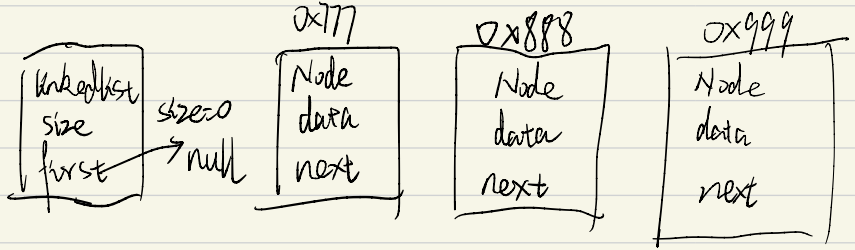 linkedlist
size
first
size=0
null
0x777
Node
data
next
0x888
Node
data
next
0x999
Node
data
next